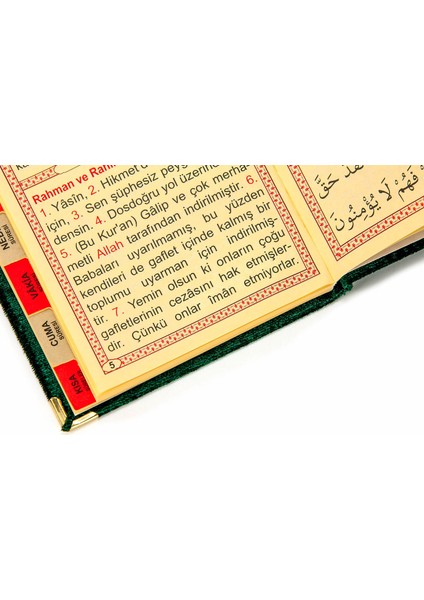 Rahman ve Rahî
1. Yâsîn. 2. Hikmet d
için, 3. Sen şüphesiz peyg
densin. 4. Dosdoğru yol üzerine
5. (Bu Kur'an) Gâlip ve çok merha-
metli Allah tarafından indirilmiştir. 6.
Babaları uyarılmamış, bu yüzden
kendileri de gaflet içinde kalmış bir
toplumu uyarman için indirilmiş-
tir. 7. Yemin olsun ki onların çoğu
gafletlerinin cezâsını hak etmişler-
dir. Çünkü onlar îmân etmiyorlar.
5
حَقَّ
فَهُمْ لَا يُؤْمِنُونَ
VAKIA
CUMA
SURESİ
KISA